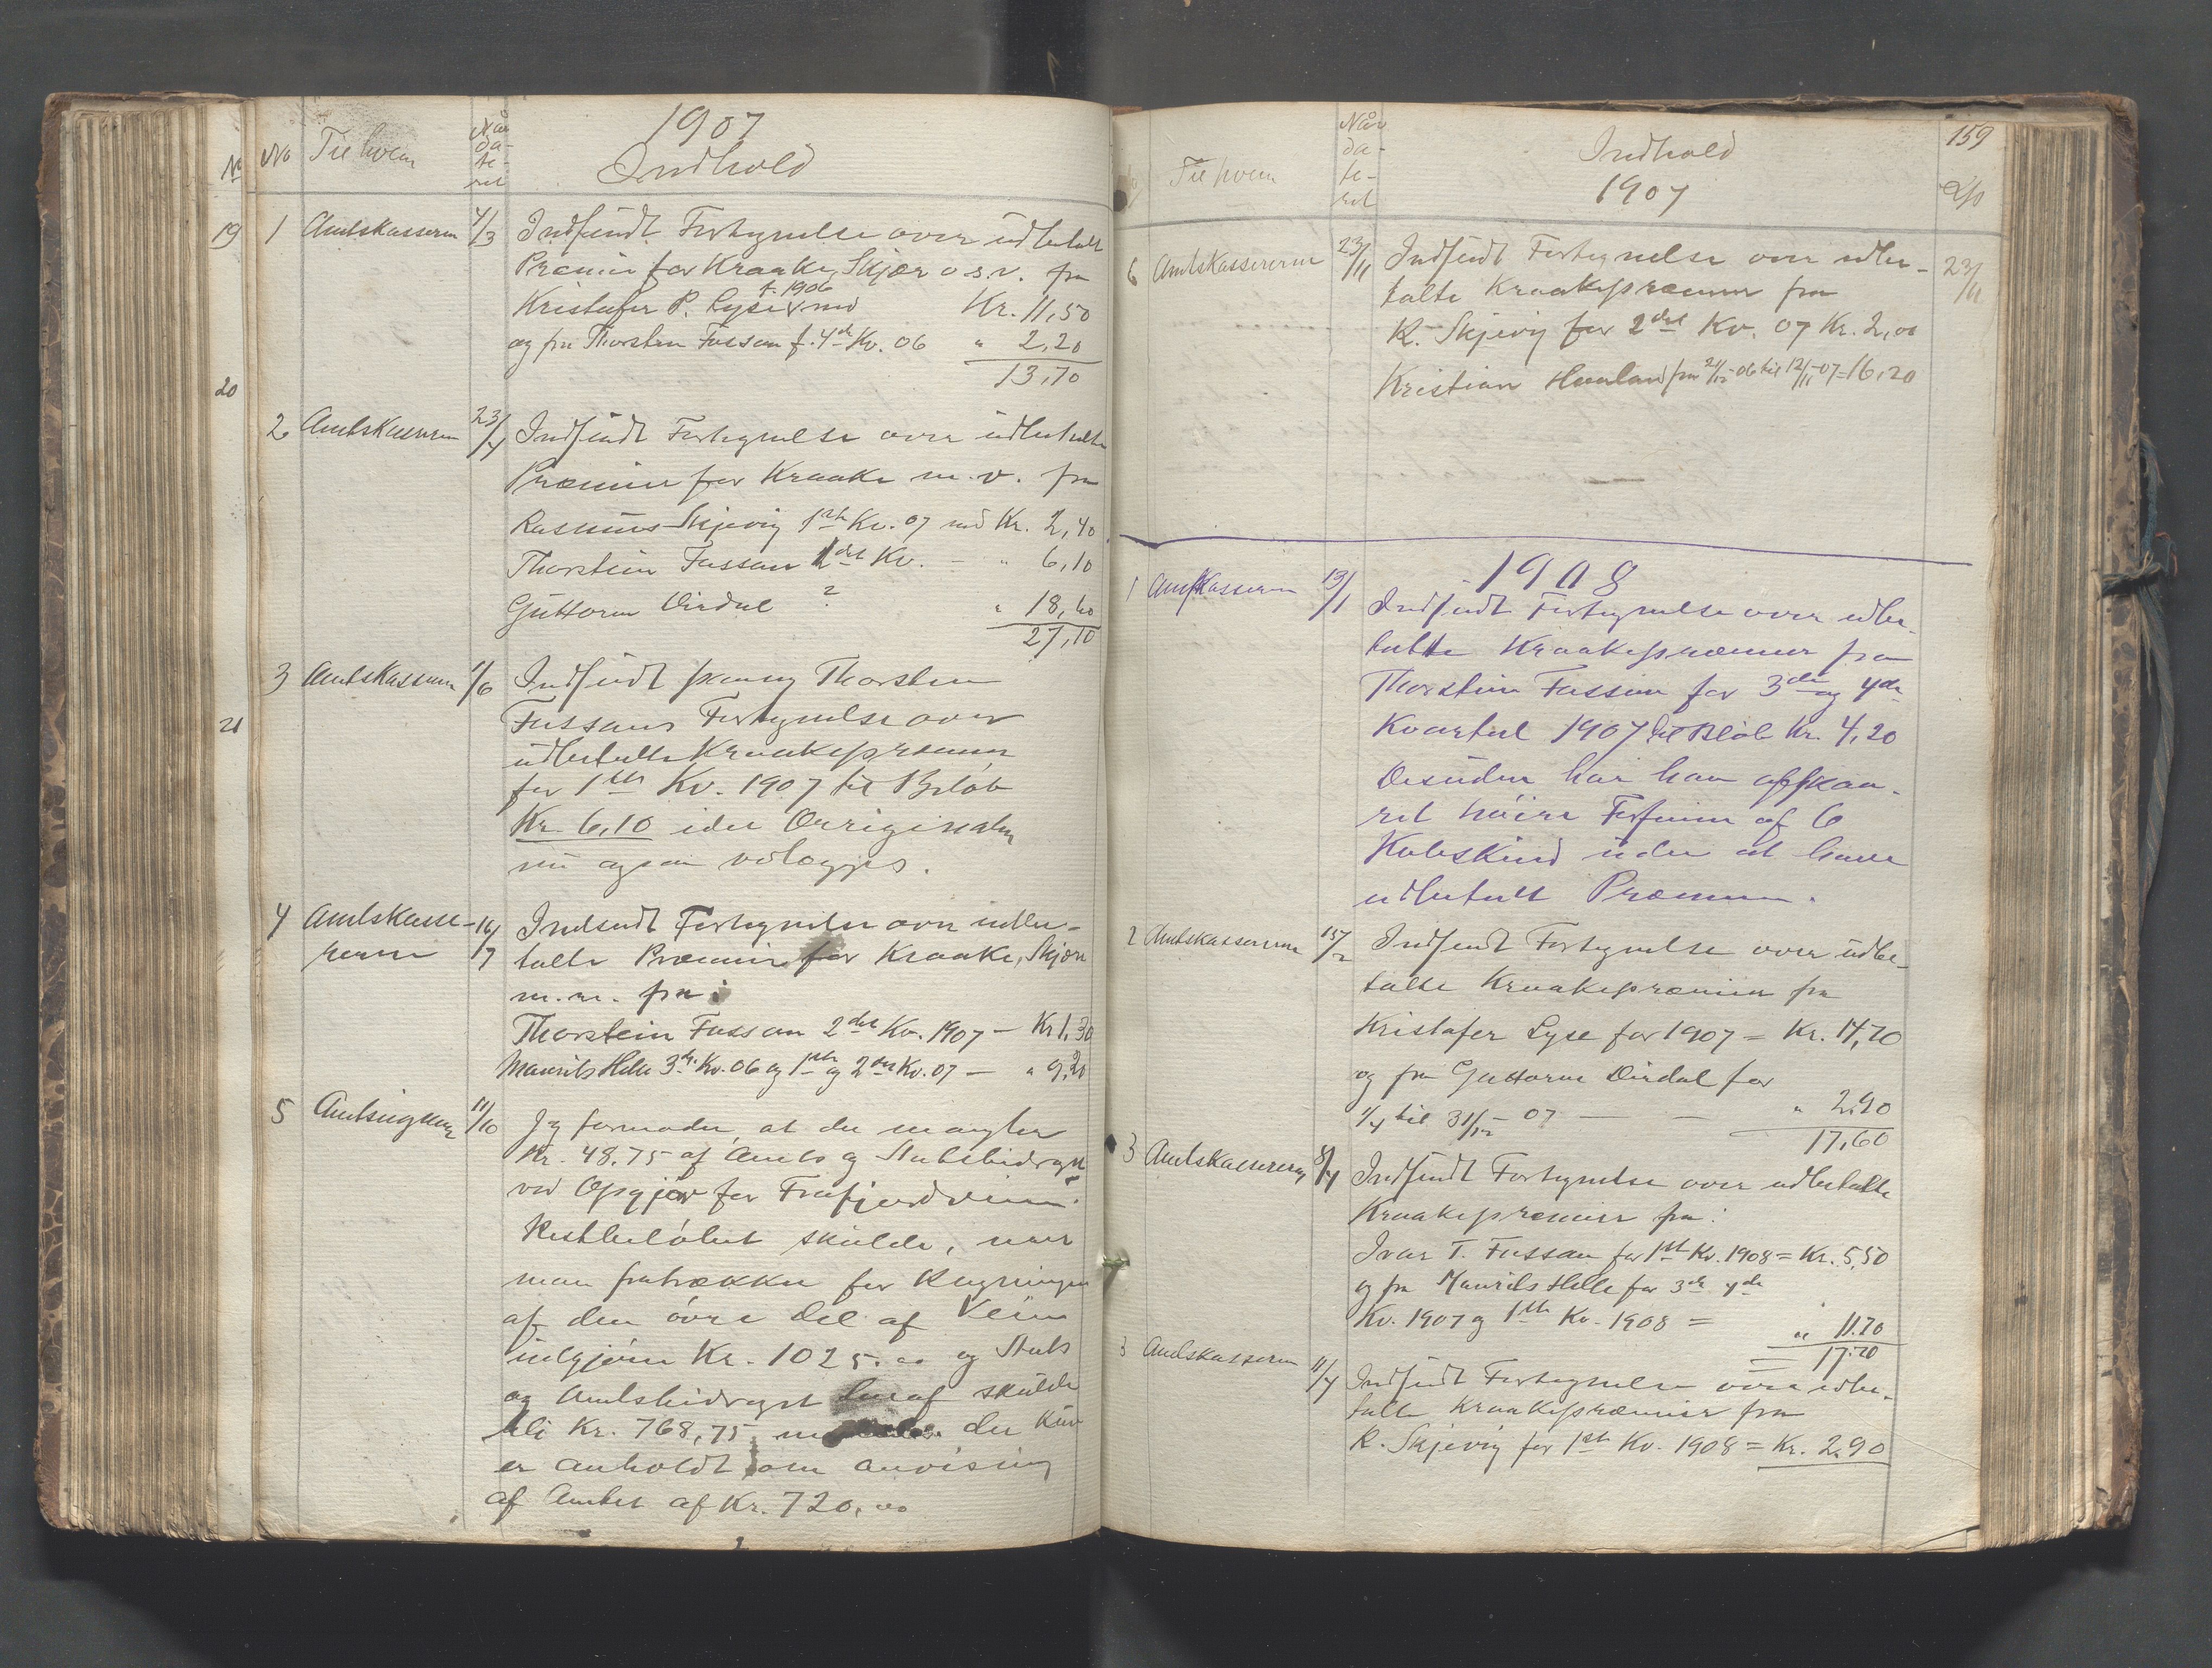 1907
No No Til hvem Når da- te- ret Indhold
19 1 Amtskasserern 4/3 Indsendt Fortegnelse over udbetalt
Præmier for Kraake, Skjær o.s.v. fra
Kristofer P. Lyse f. 1906 med Kr. 11,50
og fra Thorsten Fossan f. 4de Kv. 06 " 2,20
13,70
20
2 Amtskasserern 23/4 Indsendt Fortegnelse over udbetalte
Præmier for Kraake m.v. fra
Rasmus Skjevig 1ste Kv. 07 med Kr. 2,40
Thorstein Fossan 1det Kv. - " 6,10
Guttorm Dirdal ? " 18,60
27,10
3 Amtskasserern 1/6 Indsendt paany Thorsten
Fossans Fortegnelse over
udbetalte Kraakepræmier
for 1ste Kv. 1907 til Beløb
Kr. 6,10 idet Orriginalen
21
nu ogsaa vedlægges.
4 Amtskasse- 16/7 Indsendt Fortegnelse over udbe-
reren talte Præmier for Kraake, Skjære
m.m. fra:
Thorstein Fossan 2det Kv. 1907 - Kr 1,30
Maurits Helle 3de Kv. 06 og 1ste og 2det Kv. 07 - " 9,20
5 Amtsingeniør 11/10 Jeg formoder, at der mangler
Kr. 48,75 af Amts og Statsbidraget
ved Opgjør for Frafjordveien.
Restbeløbet skulde, naar
man fratrækker for Rugningen
af den øvre Del af Veien
udgjøre Kr. 1025.00 og Stats
og Amtsbidraget heraf skulde
bli Kr. 768,75, der kun
er anholdt om anvisning
af Amtet af Kr. 720,00
159
Til hvem Når da- te- ret Indhold
1907
6 Amtskassereren 23/11 Indsendt Fortegnelse over udbe- 23/11
talte Kraakepræmier fra
R. Skjevig for 2det Kv. 07 Kr. 2,00
Kristian Haaland fra 21/12-06 til 12/11-07=16,20
1908
1 Amtskasserern 13/1 Indsendt Fortegnelse over udbe-
talte Kraakepræmier fra
Thorstein Fossan for 3de og 4de
Kvartal 1907 til Beløb Kr. 4,20
Desuden har han afskaa-
ret høire Forfinne af 6
Kobeskind uden at have
udbetalt Præmien.
2 Amtskassereren 15/2 Indsendt Fortegnelse over udbe-
talte Kraakepræmier fra
Kristofer Lyse for 1907 = Kr. 14,70
og fra Guttorm Dirdal for
1/4 til 31/12 07 - - " 2,90
17,60
3 Amtskassereren 8/4 Indsendt Fortegnelse over udbetalte
Kraakepræmier fra:
Ivar T. Fossan for 1ste Kv. 1908 = Kr. 5,50
og fra Maurits Helle for 3de 4de
Kv. 1907 og 1ste Kv. 1908 = " 11.70
17.20
3 Amtskasserern 11/4 Indsendt Fortegnelse over udbe-
talte Kraakepræmier fra
R. Skjevig for 1ste Kv. 1908 = Kr. 2.90